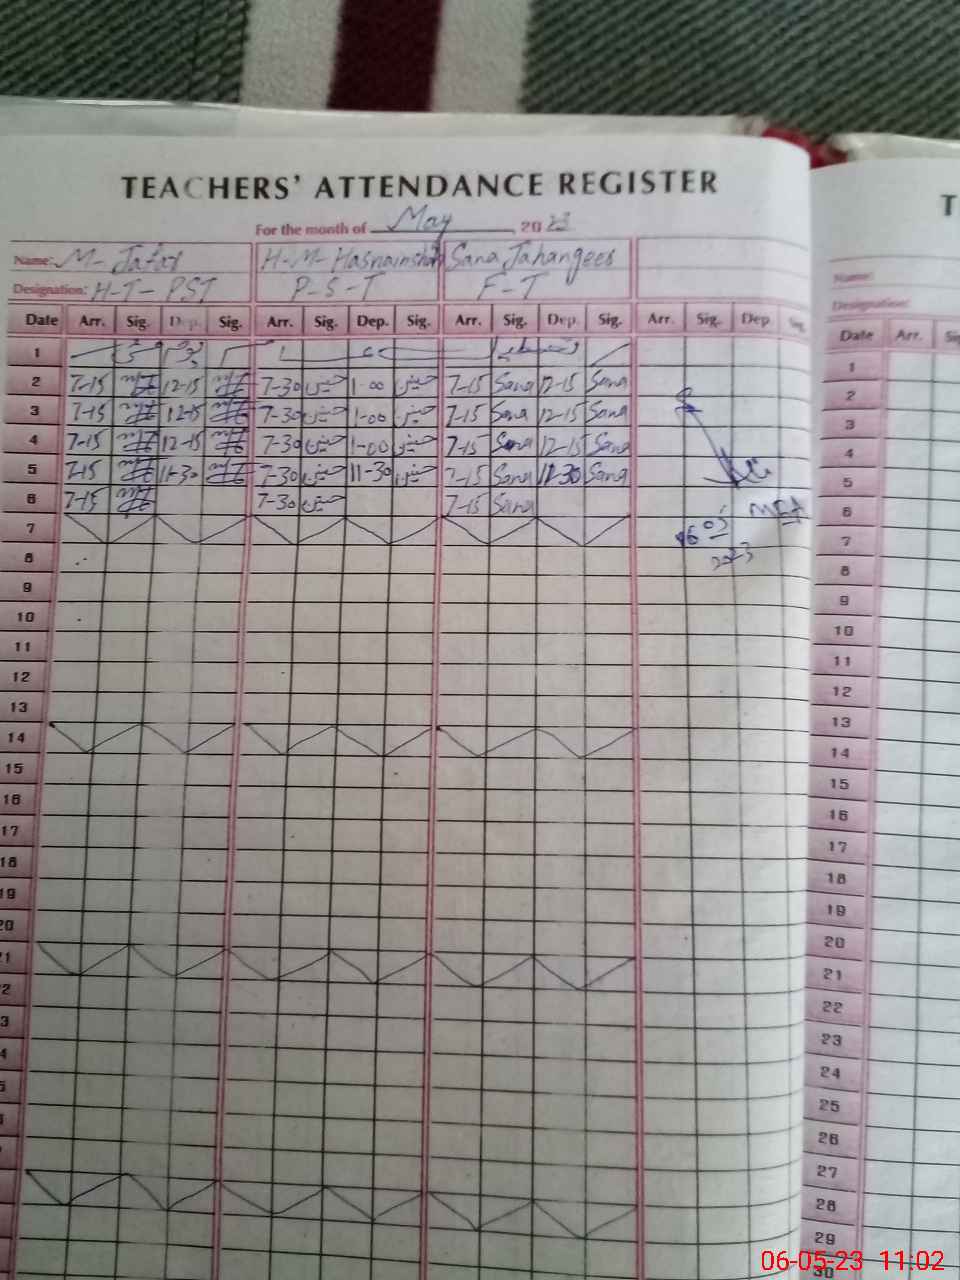 TEACHERS' ATTENDANCE REGISTER
For the month of May, 2023
Name: M- Jafar H-M- Hasnainshah Sana Jahangeer
Designation: H-T- PST P-S-T F-T
Date Arr. Sig. Dep. Sig. Arr. Sig. Dep. Sig. Arr. Sig. Dep. Sig. Arr. Sig. Dep. Sig.
1
2 7-15 12-15 7-30 1-00 7-15 Sana 12-15 Sana
3 7-15 12-15 7-30 1-00 7-15 Sana 12-15 Sana
4 7-15 12-15 7-30 1-00 7-15 Sana 12-15 Sana
5 7-15 11-30 7-30 11-30 7-15 Sana 11-30 Sana
6 7-15 7-30 7-15 Sana
MEA
7
06 05
2023
8
9
10
11
12
13
14
15
16
17
18
19
20
21
22
T
Name:
Designation:
Date Arr.
1
2
3
4
5
6
7
8
9
10
11
12
13
14
15
16
17
18
19
20
21
22
23
24
25
26
27
28
29
30
06-05-23 11:02